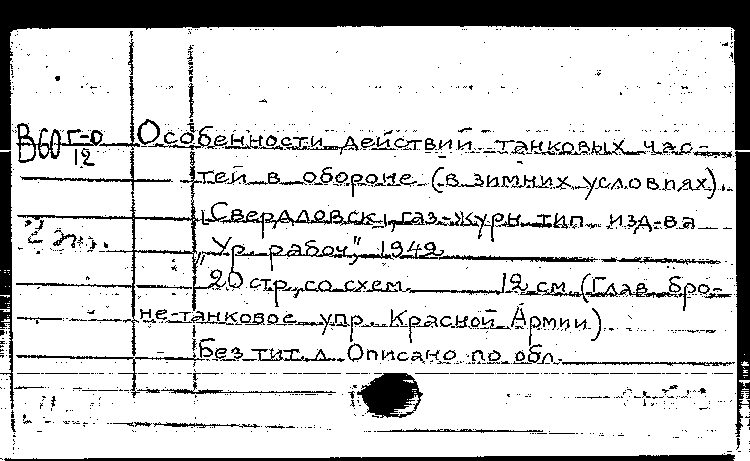 В60 Г-0/12 Особенности действий танковых час-
тей в обороне (в зимних условиях).
Свердловск, газ-журн. тип. изд-ва
2 эк. "Ур. рабоч", 1942
20 стр., со схем. 12 см. (Глав. бро-
не-танковое упр. Красной Армии)
Без тит. л. Описано по обл.